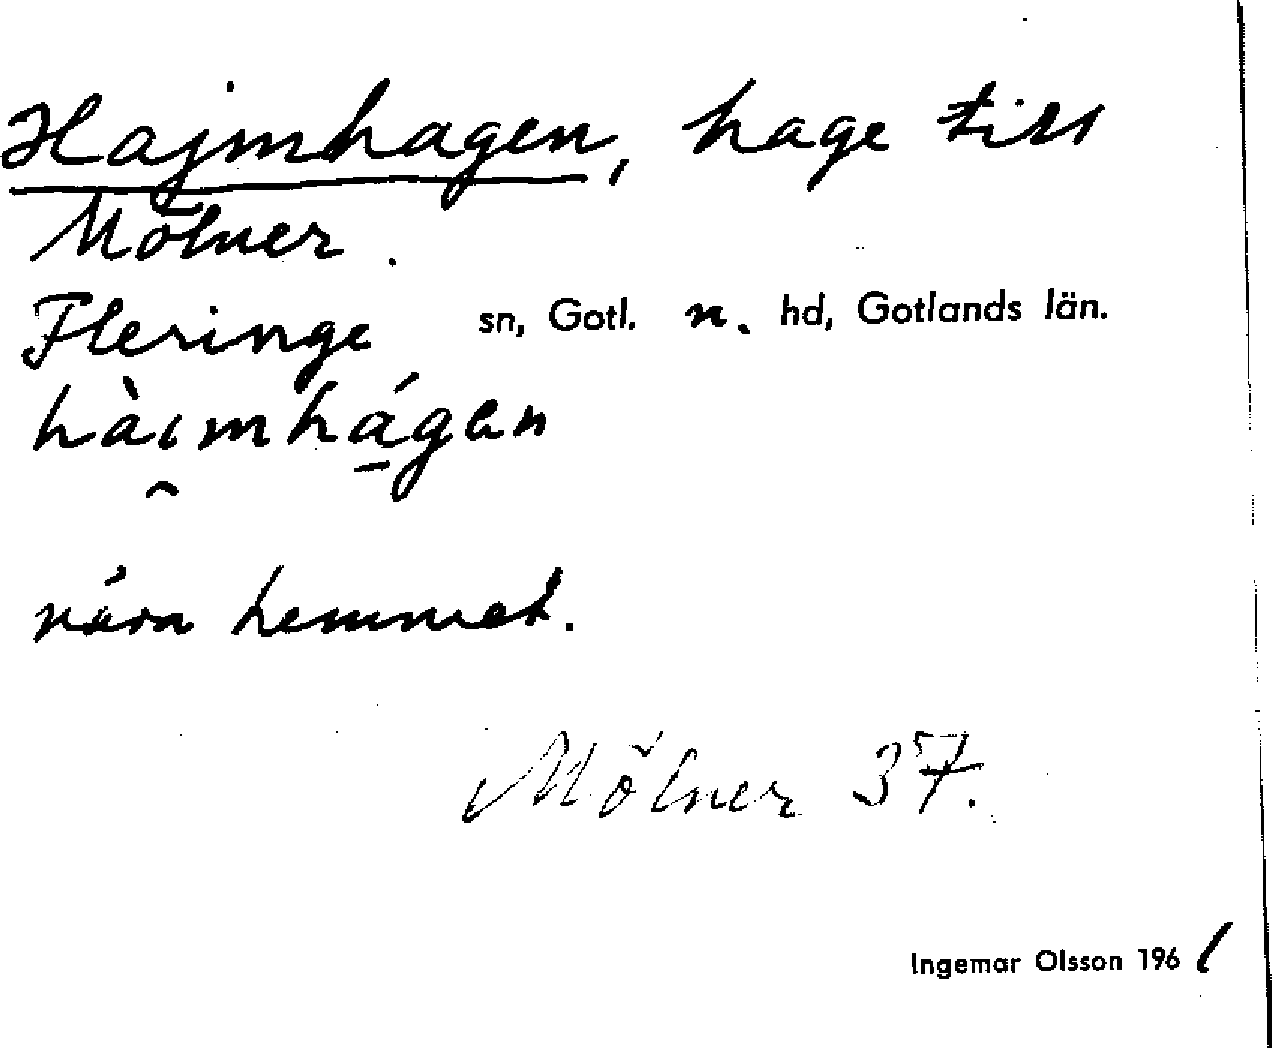 Hajmhagen, hage till
Mölner.
Fleringe sn, Gotl. n. hd, Gotlands län.
hàimhág̱en
nära hemmet.
Mölner 37.
Ingemar Olsson 1961